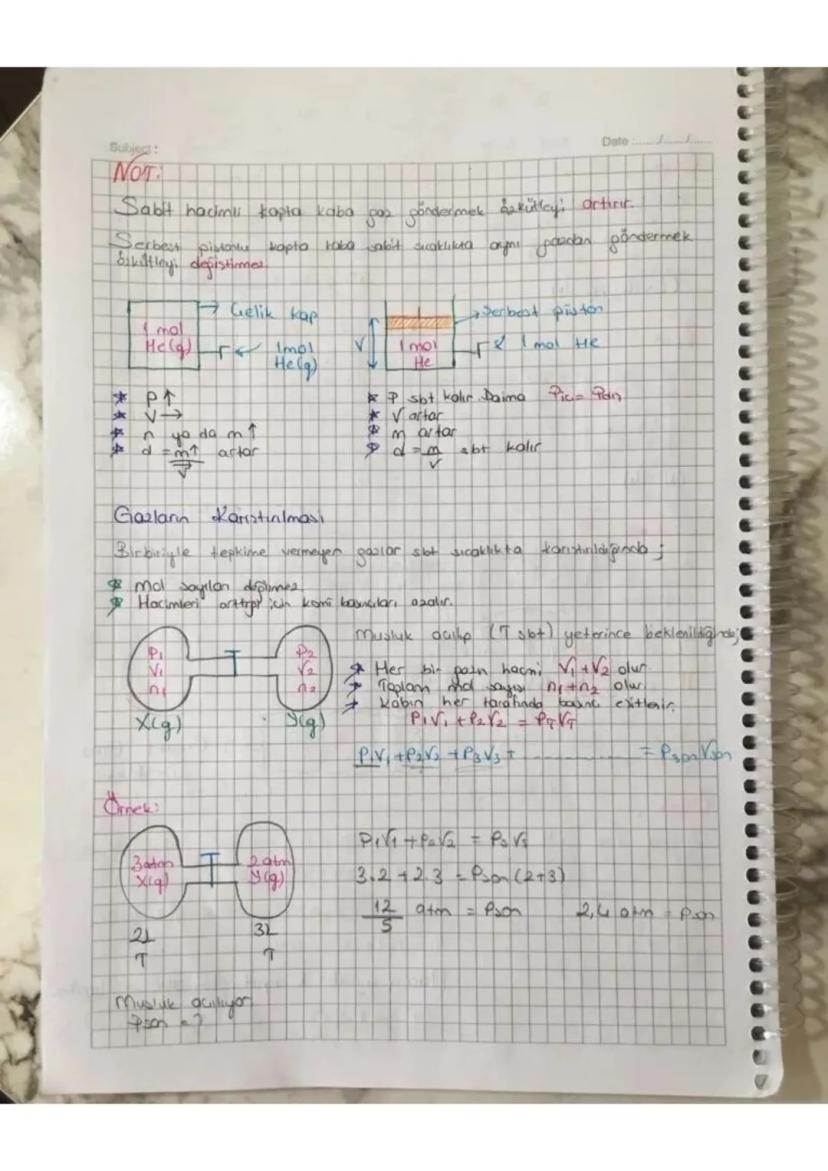 Subject:
Date:....../....../......
NOT:
Sabit hacimli kapta kaba gaz göndermek özkütleyi artırır.
Serbest pistonlu kapta kaba sabit sıcaklıkta aynı gazdan göndermek
özkütleyi değiştirmez
1 mol
He(g)
Çelik kap
1mol
He(g)
V
1 mol
He
Serbest piston
1 mol He
* P↑
* V→
* n ya da m↑
* d = m↑/V artar
* P sbt kalır. Daima Piç = Pdış
* V artar
* m artar
* d = m/V sbt kalır
Gazların Karıştırılması
Birbiriyle tepkime vermeyen gazlar sbt sıcaklıkta karıştırıldığında ;
* Mol sayıları değişmez
* Hacimleri arttığı için kısmi basınçları azalır.
P1
V1
n1
X(g)
P2
V2
n2
Y(g)
Musluk açılıp (T sbt) yeterince beklenildiğinde;
* Her bir gazın hacmi V1+V2 olur
* Toplam mol sayısı n1+n2 olur
* Kabın her tarafında basınç eşitlenir.
P1V1 + P2V2 = PTVT
P1V1+P2V2+P3V3+ .................... = PsonVson
Örnek:
3 atm
X(g)
2L
T
2 atm
Y(g)
3L
T
P1V1 + P2V2 = PsVs
3.2 + 2.3 = Pson (2+3)
12/5 atm = Pson 2,4 atm = Pson
Musluk açılıyor
Pson = ?